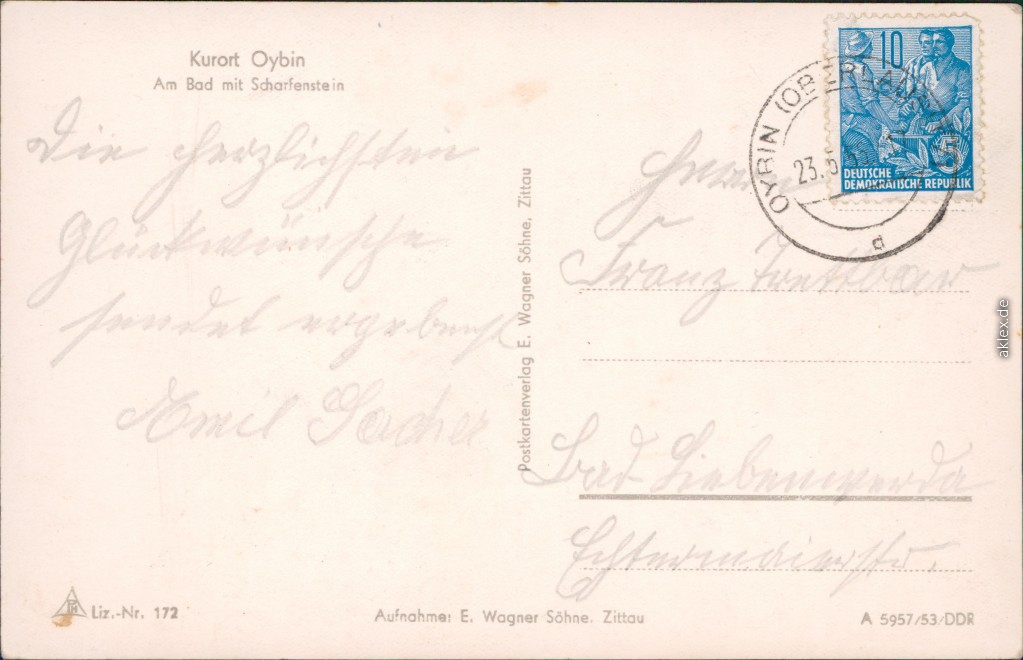 Kurort Oybin
Am Bad mit Scharfenstein
Die herzlichsten
Glückwünsche
sendet ergebenst
Emil
Postkartenverlag E. Wagner Söhne, Zittau
10
DEUTSCHE
DEMOKRATISCHE REPUBLIK
5
OYBIN (OBERLAUS
23.5
d
Herrn
Franz Trettbar
Bad-Liebenwerda
aklex.de
Liz.-Nr. 172
Aufnahme: E. Wagner Söhne. Zittau
A 5957/53/DDR